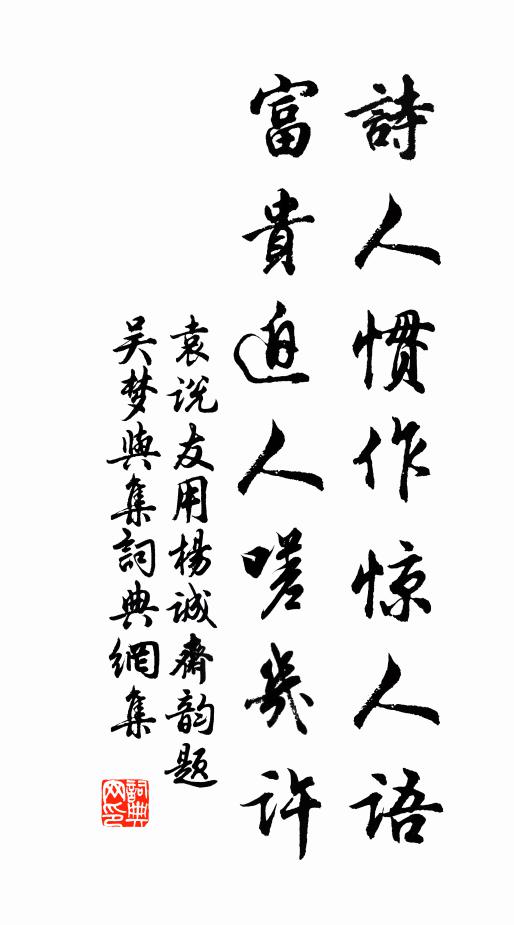 詩人慣作惊人語
富貴迫人嗟幾许
袁说友用楊诚齋韵题
吴梦與集詞典網集
詞典
网印